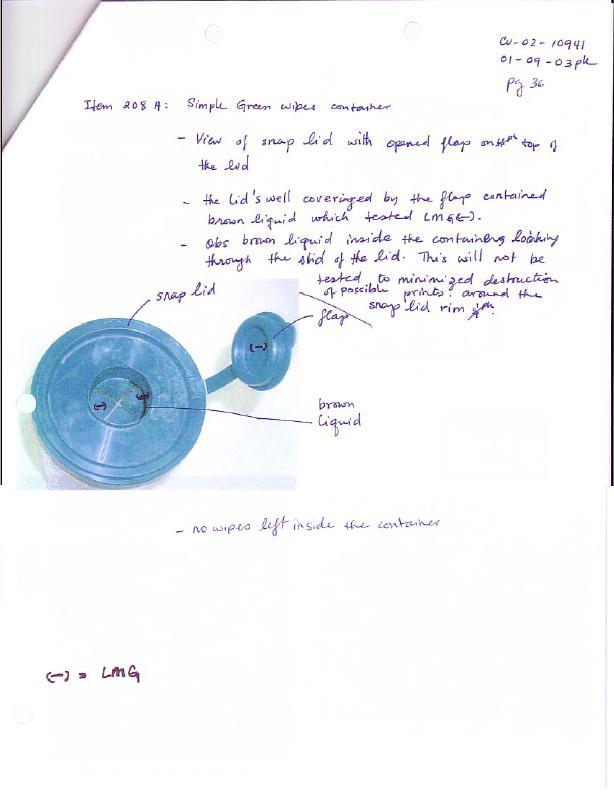 CV-02-10941
01-09-03 pk
pg 36
Item 208 A: Simple Green wipes container
- View of snap lid with opened flap on top of
the lid
- the lid's well coveringed by the flap contained
brown liquid which tested LMG(-).
- Obs brown liquid inside the containing looking
through the slid of the lid. This will not be
tested to minimized destruction
of possible prints. around the
snap lid rim
snap lid
flap
(-)
(-)
(-)
brown
liquid
- no wipes left inside the container
(-) = LMG